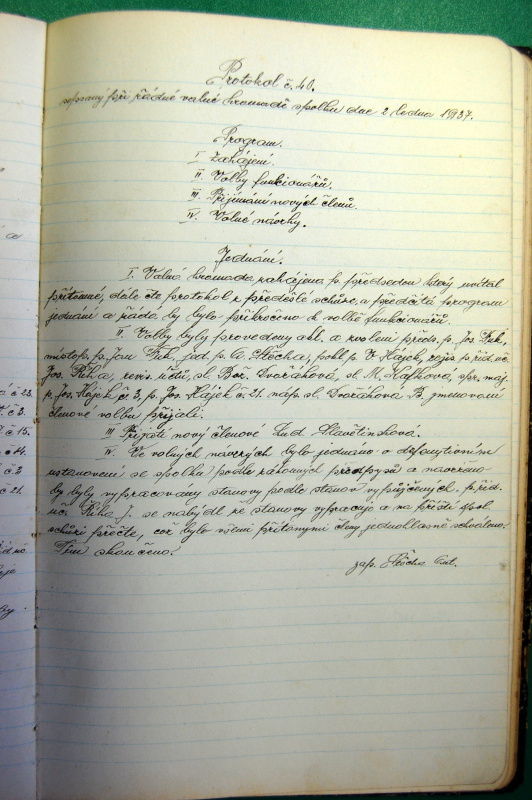 Protokol č. 40.
sepsaný při řádné valné hromadě spolku dne 2 ledna 1937.
Program.
I Zahájení.
II Volby funkcionářů.
III Přijímání nových členů.
IV. Volné návrhy.
Jednání.
I. Valná hromada zahájena p. předsedou který uvítal
přítomné, dále čte protokol z předešlé schůze, a předčítá program
jednání a žádá by bylo přikročeno k volbě funkcionářů.
II. Volby byly provedeny akl. a zvoleni předs. p. Jos.
místop. p. Jan jed. p. A. Stěcha, pokl. p. V. Hájek, zapis. p. říd. uč.
Jos. Říha, revis. účtů, sl. Bož. Dvořáková, sl. M. Hájková, spr. maj.
p. Jos. Hájek č 3, p. Jos. Hájek č. 21. nap. sl. Dvořáková B. jmenovaní
členové volbu přijali.
III Přijati nový členové Lud. Slavětínková.
IV. Ve volných návrzích bylo jednáno o definytivním
ustanovení se spolku podle zákonných předpysů a navrženo
by byly vypracovány stanovy podle stanov vypůjčených. p. říd.
uč. Říha J. se nabýdl že stanovy vypracuje a na příští spol.
schůzi přečte, což bylo všemi přítomnými členy jednohlasně schváleno.
Tím skončeno.
zap. Stěcha Ant.
č 23.
č 3.
č 15.
č 14.
č 3
č 21.